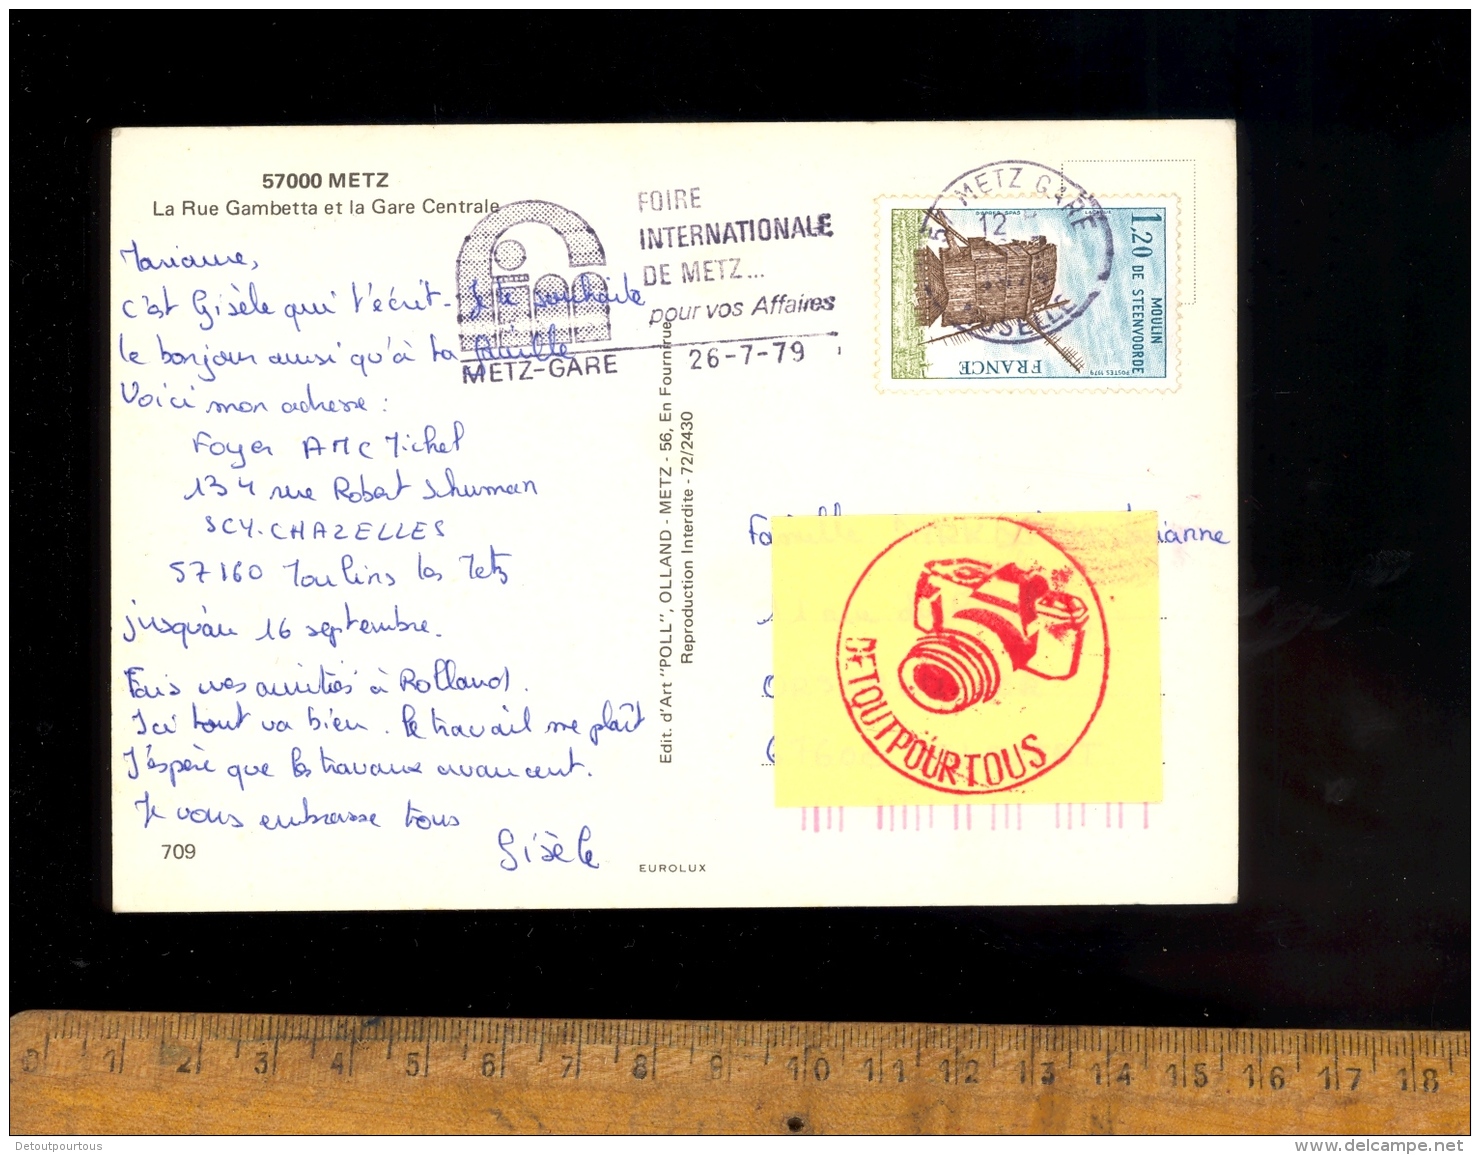 57000 METZ
La Rue Gambetta et la Gare Centrale
Marianne,
c'est Gisèle qui t'écrit - Je te souhaite
le bonjour aussi qu'à ta famille
Voici mon adresse :
Foyer AMC Michel
134 rue Robert Schuman
SCY-CHAZELLES
57160 Moulins les Metz
jusqu'au 16 septembre.
Fais mes amitiés à Rolland.
Ici tout va bien. Le travail me plaît
J'espère que les travaux avancent.
Je vous embrasse tous
Gisèle
709
EUROLUX
Edit. d'Art "POLL", OLLAND - METZ - 56, En Fournirue
Reproduction Interdite - 72/2430
fim
FOIRE
INTERNATIONALE
DE METZ...
pour vos Affaires
METZ-GARE 26-7-79
57 METZ GARE
12 H
MOSELLE
1,20 MOULIN
DE STEENVOORDE
POSTES 1979
FRANCE
Famille
ianne
DETOUTPOURTOUS
0 1 2 3 4 5 6 7 8 9 10 11 12 13 14 15 16 17 18
Detoutpourtous
www.delcampe.net